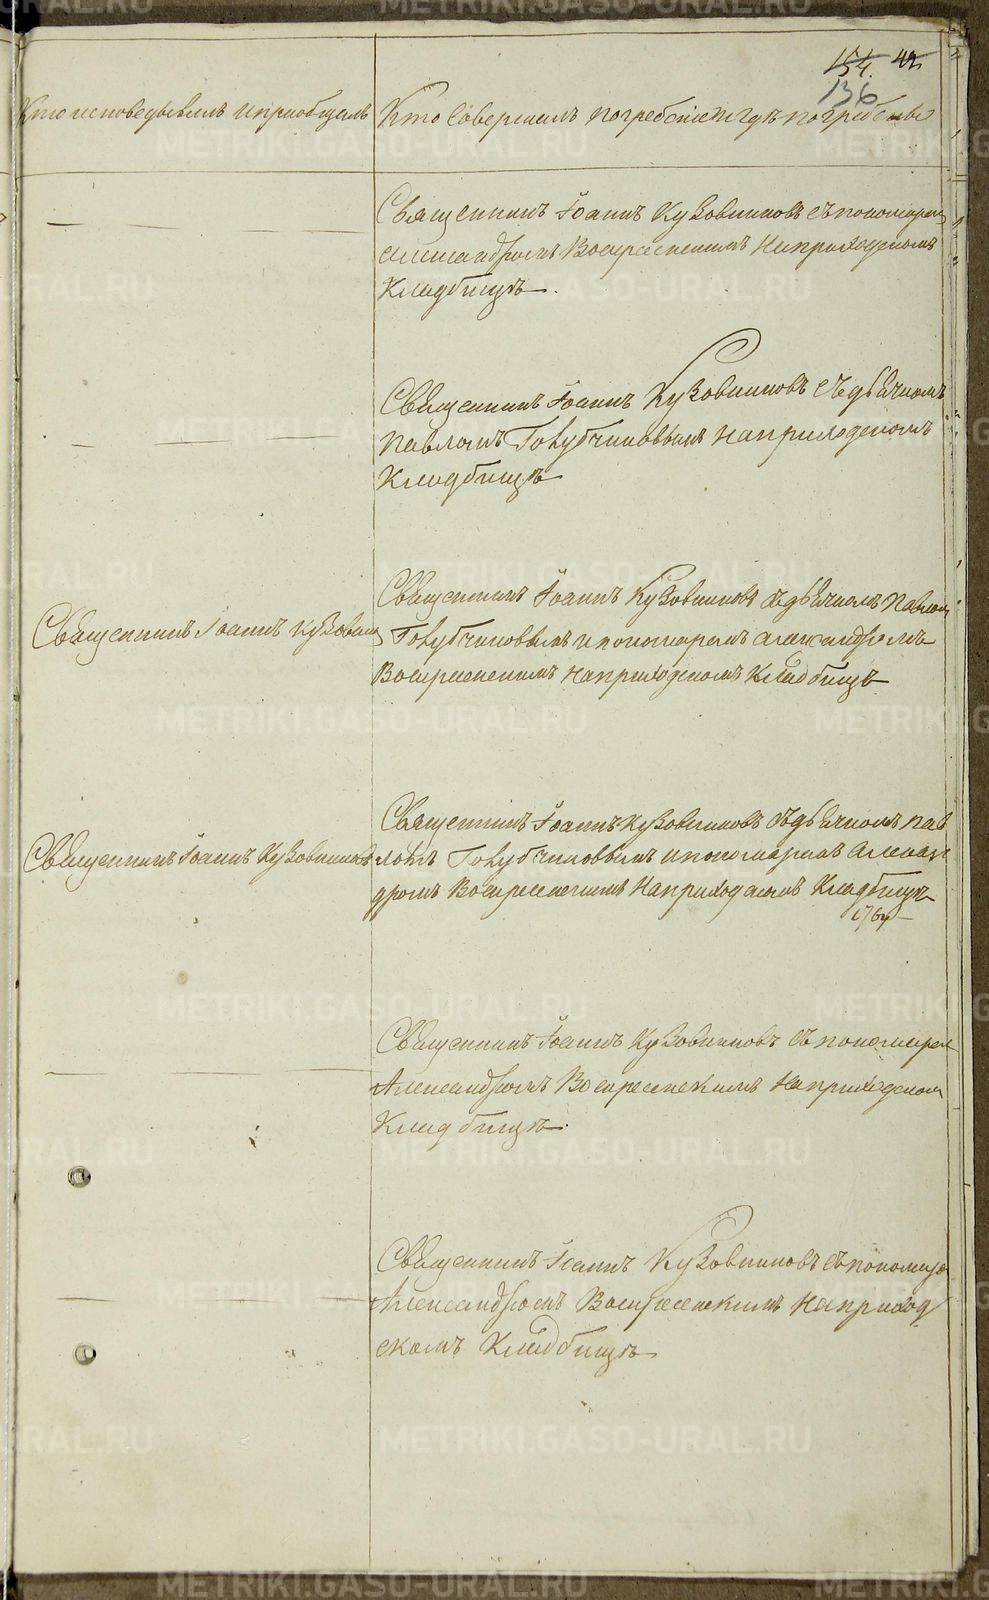 154. 42
136
Кто исповедывалъ и приобщалъ
Кто Совершалъ погребеніе и гдѣ погребены
Священникъ Іоаннъ Кузовниковъ съ пономарем
Александромъ Воскресенскимъ На приходскомъ
Кладбищѣ.
Священникъ Іоаннъ Кузовниковъ съ дьячкомъ
Павломъ Голубчиковымъ на приходскомъ
Кладбищѣ
Священникъ Іоаннъ Кузовник
Священникъ Іоаннъ Кузовниковъ съ дьячкомъ Павлом
Голубчиковымъ и пономаремъ Александромъ
Воскресенскимъ на приходскомъ Кладбищѣ
Священникъ Іоаннъ Кузовниковъ
Священникъ Іоаннъ Кузовниковъ съ дьячкомъ Пав
ломъ Голубчиковымъ и пономаремъ Алексан
дромъ Воскресенскимъ На приходскомъ Кладбищѣ
Священникъ Іоаннъ Кузовниковъ съ пономарем
Александромъ Воскресенскимъ На приходском
Кладбищѣ.
Священникъ Іоаннъ Кузовниковъ съ пономаре
Александромъ Воскресенскимъ На приход
скомъ Кладбищѣ
METRIKI.GASO-URAL.RU